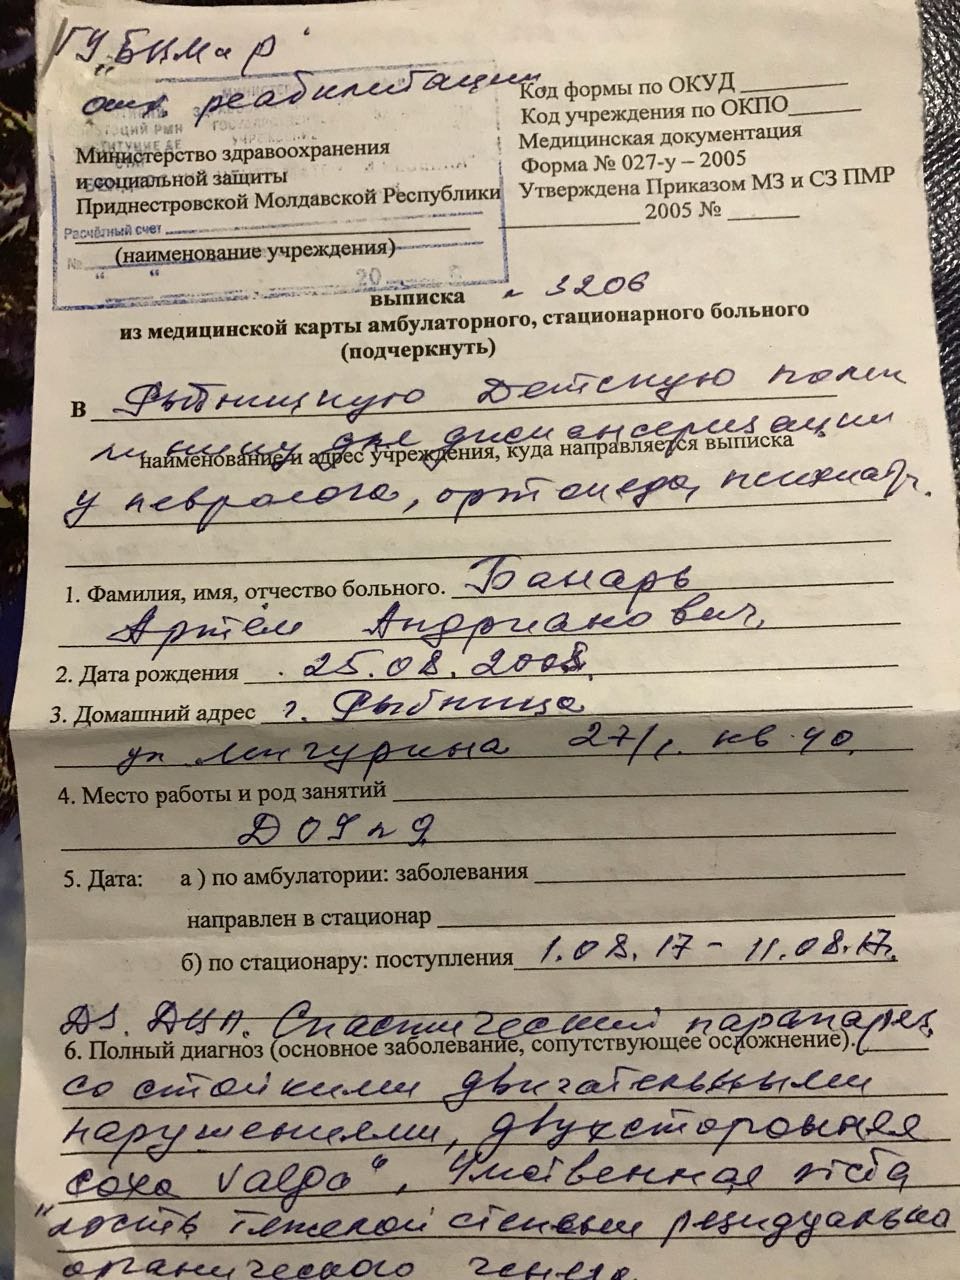 ГУ „БЦМ и Р"
отд. реабилитации
Министерство здравоохранения
и социальной защиты
Приднестровской Молдавской Республики
Расчётный счет
(наименование учреждения)
№
20 г.
Код формы по ОКУД
Код учреждения по ОКПО
Медицинская документация
Форма № 027-у – 2005
Утверждена Приказом МЗ и СЗ ПМР
2005 №
выписка № 3206
из медицинской карты амбулаторного, стационарного больного
(подчеркнуть)
В Рыбницкую Детскую поли
клинику для диспансеризации
наименование и адрес учреждения, куда направляется выписка
у невролога, ортопеда, психиатр.
1. Фамилия, имя, отчество больного. Банарь
Артём Андрианович,
2. Дата рождения 25.08.2008.
3. Домашний адрес г. Рыбница
ул Мичурина 27/1. кв 40.
4. Место работы и род занятий
ДОУ № 9
5. Дата: а ) по амбулатории: заболевания
направлен в стационар
б) по стационару: поступления 1.08.17 – 11.08.17.
DS. ДЦП. Спастический парапарез
6. Полный диагноз (основное заболевание, сопутствующее осложнение).
со стойкими двигательными
нарушениями, двухсторонняя
"coxa valga", Умственная отста
лость тяжелой степени резидуально
органического генеза.